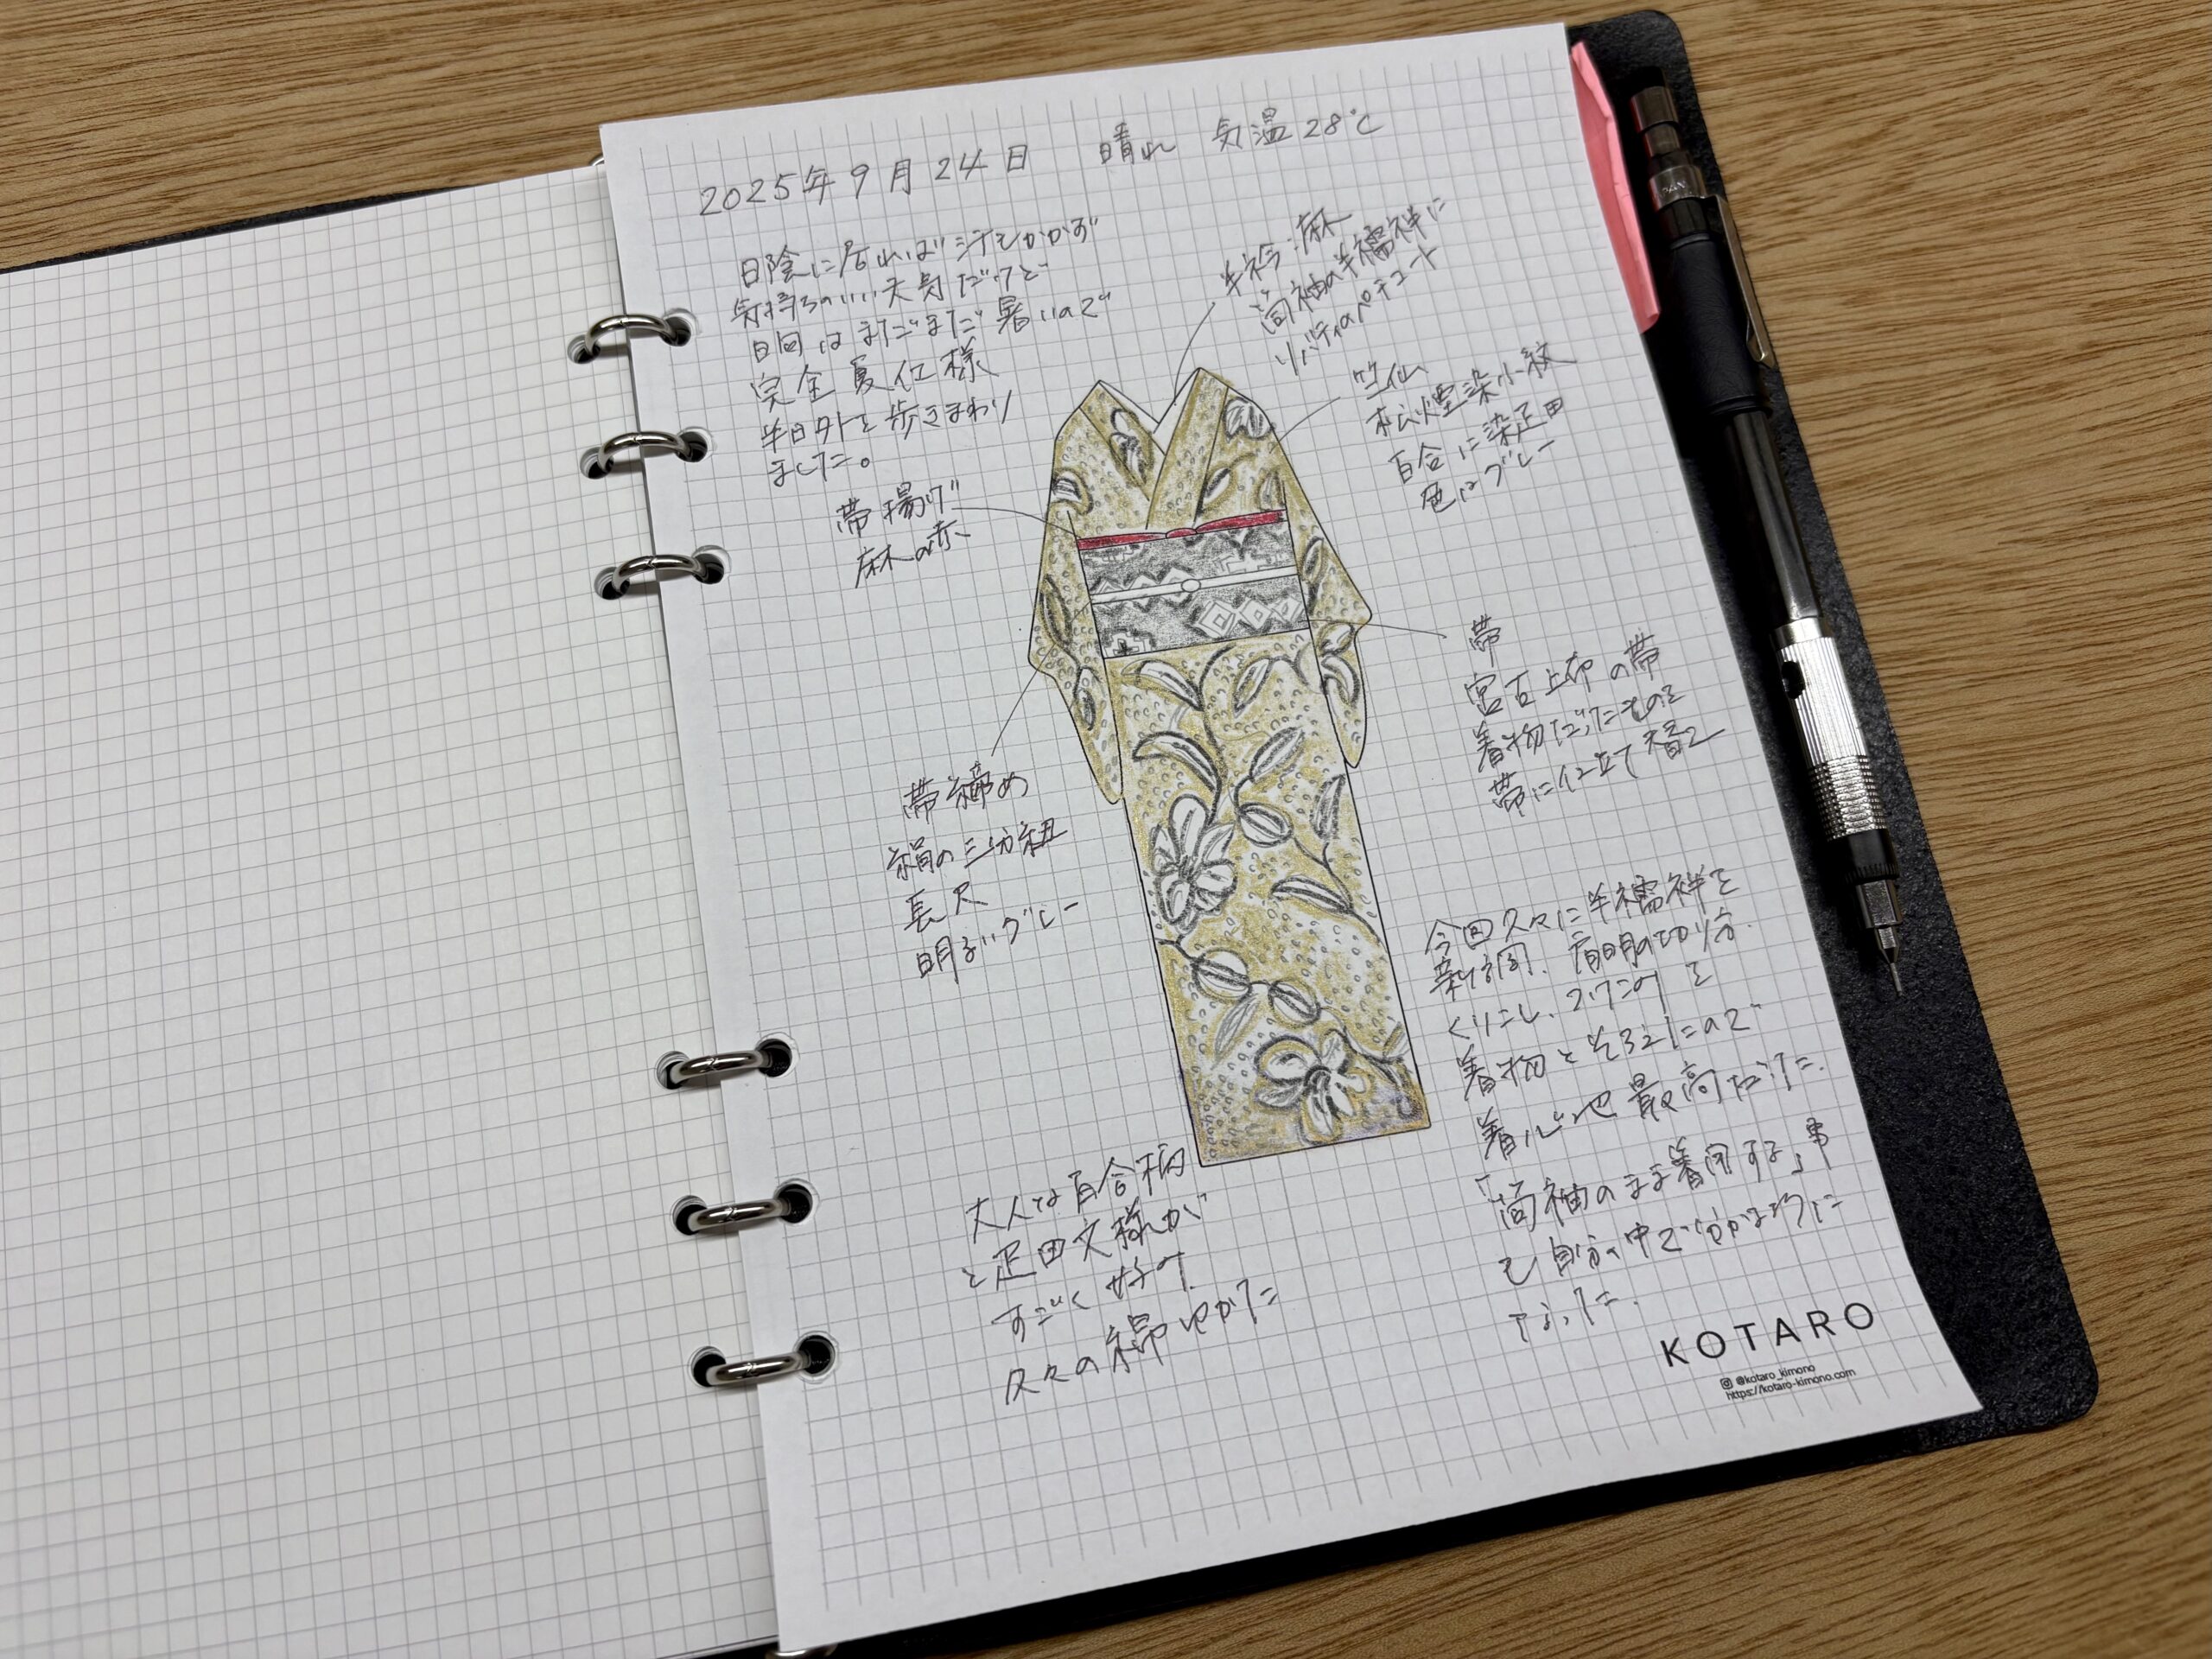 2025年9月24日 晴れ 気温28℃
日陰に居れば汗もかかず
気持ちのいい天気だけど
日向はまだまだ暑いので
完全夏仕様
半日外を歩きまわり
ました。
半衿:麻
筒袖の半襦袢に
リバティのペチコート
竺仙
松煙染小紋
百合に染疋田
色はグレー
帯揚げ
麻の赤
帯
宮古上布の帯
着物だったものを
帯に仕立て替え
帯締め
絹の三分紐
長尺
明るいグレー
今回久々に半襦袢を
新調。肩明の切り方、
くりこし、つけこみを
着物とそろえたので
着心地最高だった。
「筒袖のまま着用する」事
も自分の中で
なった。
大人な百合柄
と疋田文様が
すごく好み
久々の綿ゆかた
KOTARO
@kotaro_kimono
https://kotaro-kimono.com